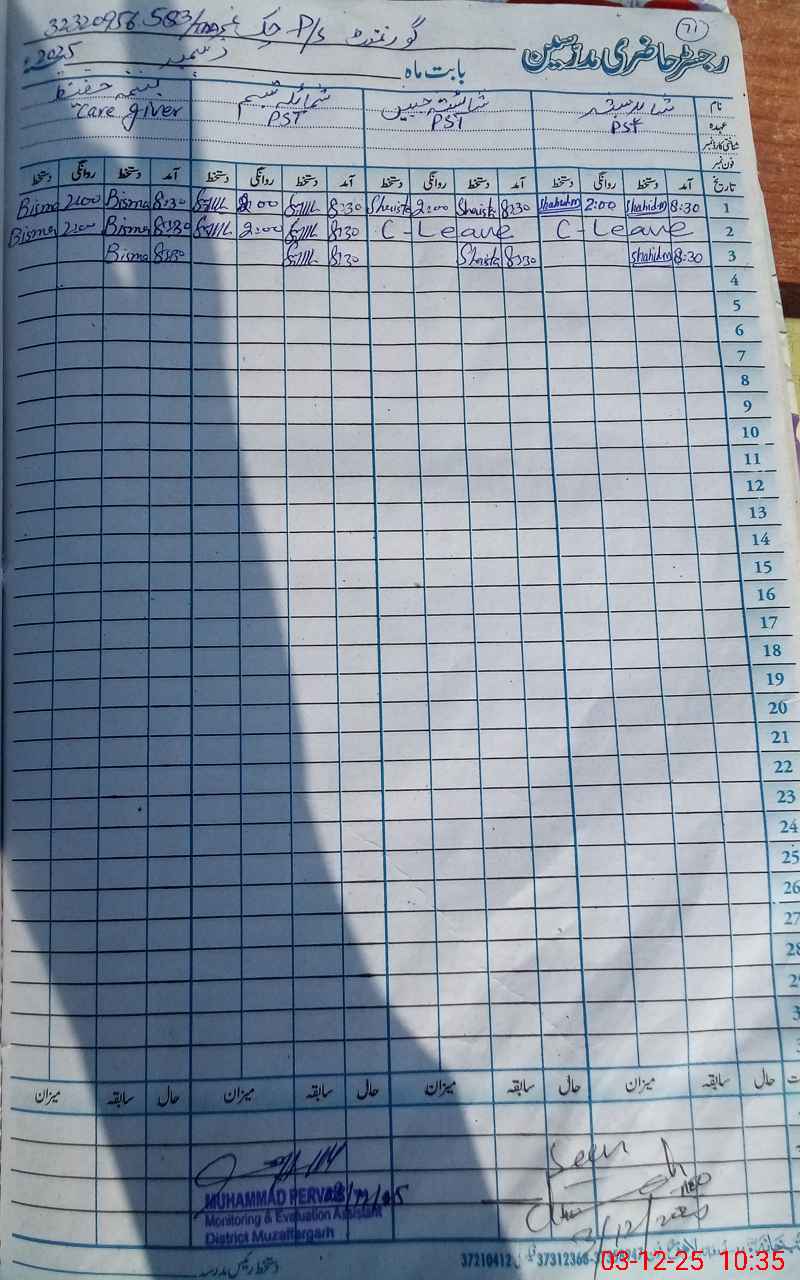 71
رجسٹر حاضری مدرسین
گورنمنٹ P/S چک نمبر 583/TDA 32320956
بابت ماہ دسمبر 2025ء
نام شاہد مبشر شائستہ جبیں شمائلہ تبسم بسمہ حفیظ
عہدہ PST PST PST Care giver
شناختی کارڈ نمبر
فون نمبر
تاریخ آمد دستخط روانگی دستخط آمد دستخط روانگی دستخط آمد دستخط روانگی دستخط آمد دستخط روانگی دستخط
1 8:30 Shahidm 2:00 Shahidm 8:30 Shaista 2:00 Shaista 8:30 2:00 8:30 Bisma 2:00 Bisma
2 C-Leave C-Leave 8:30 2:00 8:30 Bisma 2:00 Bisma
3 8:30 Shahidm 8:30 Shaista 8:30 8:30 Bisma
4
5
6
7
8
9
10
11
12
13
14
15
16
17
18
19
20
21
22
23
24
25
26
27
28
2
3
3
حال سابقہ میزان حال سابقہ میزان حال سابقہ میزان حال سابقہ میزان
Seen
3/12/2025
MUHAMMAD PERVAIZ
Monitoring & Evaluation Assistant
District Muzaffargarh
دستخط رئیس مدرسہ
37210412 37312368
03-12-25 10:35